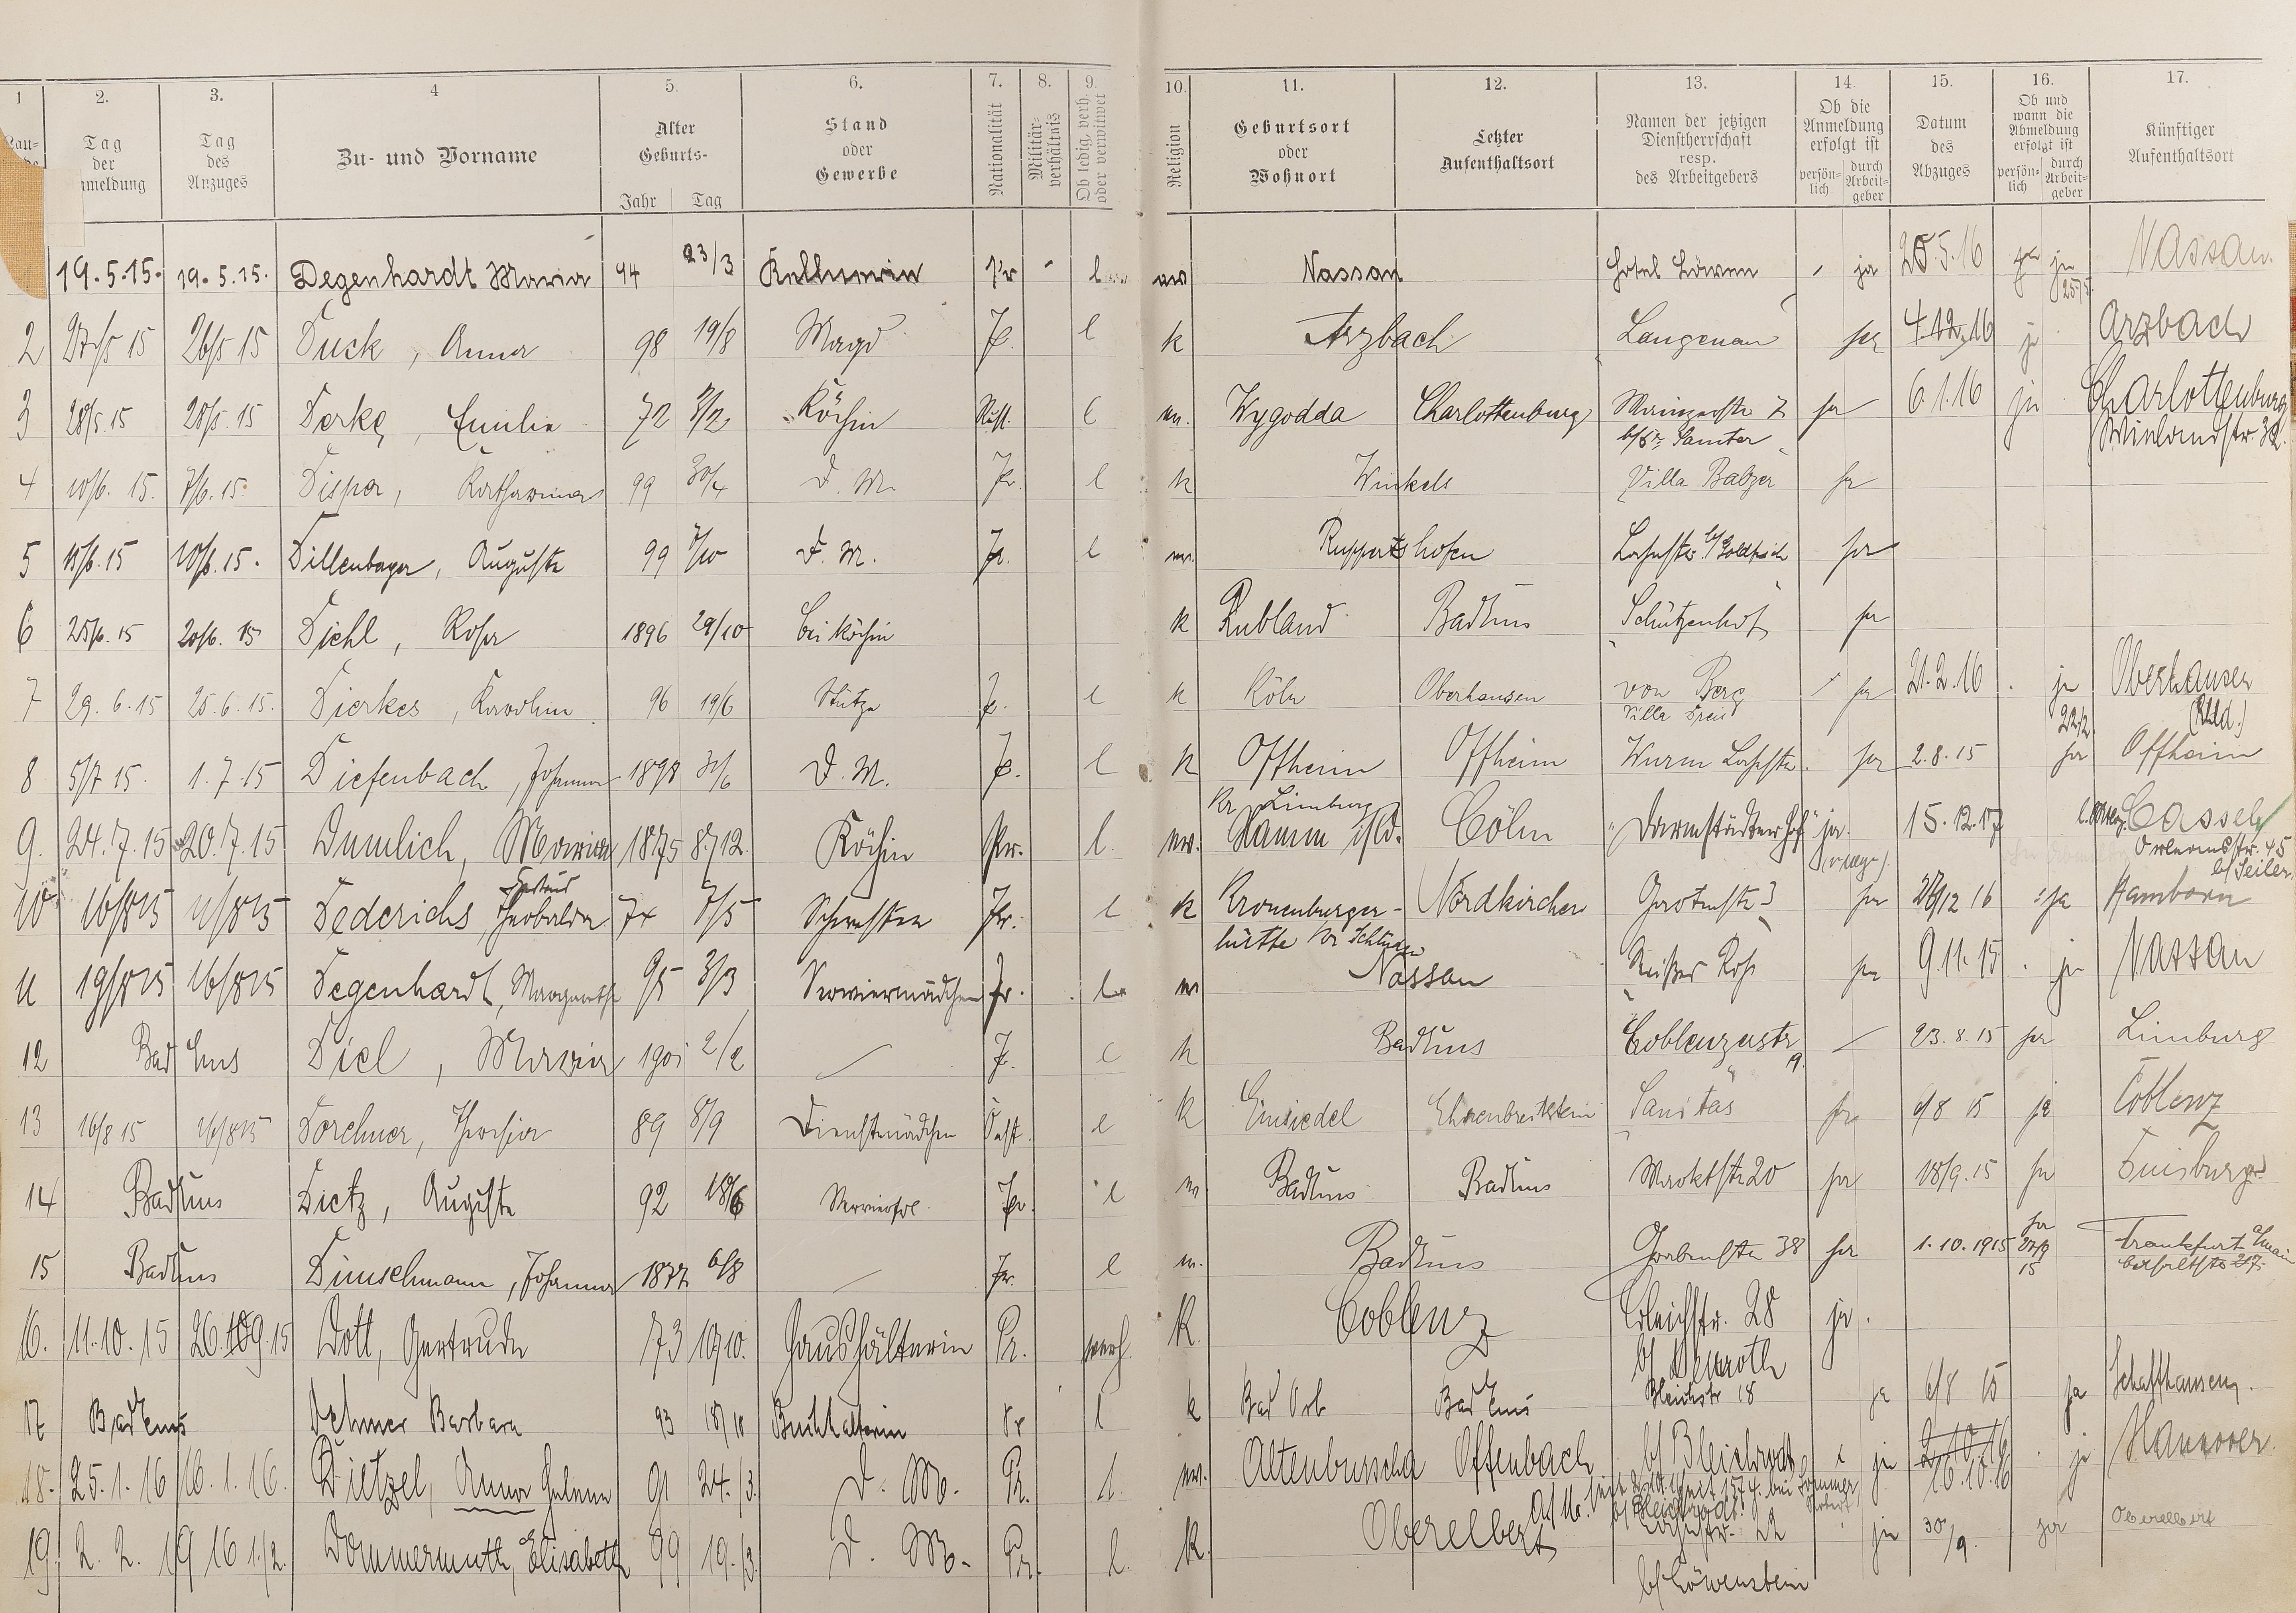 1 2. 3. 4 5. 6. 7. 8. 9. 10. 11. 12. 13. 14. 15. 16. 17.
Tag der Anmeldung
Tag des Anzuges
Zu- und Vorname
Alter Geburts- Jahr Tag
Stand oder Gewerbe
Nationalität
Militär-verhältnis
Ob ledig, verh. oder verwitwet
Religion
Geburtsort oder Wohnort
Letzter Aufenthaltsort
Namen der jetzigen Dienstherrschaft resp. des Arbeitgebers
Ob die Anmeldung erfolgt ist persön-lich durch Arbeit-geber
Datum des Abzuges
Ob und wann die Abmeldung erfolgt ist persön-lich durch Arbeit-geber
Künftiger Aufenthaltsort
19.5.15. 19.5.15. Degenhardt Maria 94 23/3 Kellnerin Pr l ev Nassau Hotel Löwen ja 25.5.16 ja 25/5 Nassau.
2 27/5 15 26/5 15 Duck, Anna 98 19/8 Magd P. l k Arzbach Langenau ja 4.12.16 ja Arzbach
3 28/5.15 28/5.15 Derke, Emilie 72 2/2 Köchin Russ. l ev. Wygodda Charlottenburg Mainzerstr 7 ja 6.1.16 ja Charlottenburg
b/ Samter Wielandstr. 32.
4 10/6. 15. 7/6.15. Disper, Katharina 99 30/4 D. M. Pr. l k Winkels Villa Balzer ja
5 15/6.15 10/6.15. Dillenberger, Auguste 99 7/10 D. M. Pr. l ev. Ruppertshofen Lahnstr. b/ ja
6 25/6.15 20/6.15 Diehl, Rosa 1896 29/10 Beiköchin k Rubland BadEms Schützenhof ja
7 29.6.15 25.6.15. Dierkes, Karoline 96 19/6 Stütze P. l k Köln Oberhausen von Berg ja 21.2.16 ja Oberhausen
Villa 22/2 (Rhld.)
8 5/7 15. 1.7.15 Diefenbach, Johanna 1898 30/6 D. M. P. l k Offheim Offheim Wurm Lahnstr. ja 2.8.15 ja Offheim
Kr Limburg
9. 24.7.15 20.7.15 Dumlich, Maria 1875 8./12. Köchin Pr. l. ev. Hamm Cöln "Darmstädter Hof" ja. 15.12.17 Cassel
45
b/ Seiler.
10 16/8 15 11/8 15 Dederichs, Theobalda 7/5 Schwester Pr. l k Kronenburger- Nordkirchen 3 ja 28/12 16 ja Hamborn
hütte Kr Schleiden
11 19/8 15 16/8 15 Degenhardt, Margarethe 95 3/3 Serviermädchen Pr. l ev Nassau Weißes Roß ja 9.11.15 ja Nassau
12 Bad Ems Diel, Maria 1901 2/2 P. l k BadEms Coblenzerstr 9. 23.8.15 ja Limburg
13 16/8 15 Dorchner, Theresia 89 8/9 Dienstmädchen Östr. l k Einsiedel Ehrenbreitstein "Sanitas" ja 15 ja Coblenz
14 BadEms Dietz, Auguste 92 18/6 Servierfrl. Pr. l ev BadEms BadEms Marktstr 20 ja 18/9.15 ja Duisburg
15 BadEms Dünschmann, Johanna 1877 6/8 Pr. l ev. BadEms Grabenstr 38 ja 1.10.1915 ja 27/9 15 Frankfurt a/Main
16. 11.10.15 26.9.15 Dott, Gertrude 73 10/10. Haushälterin Pr. verh. k. Coblenz Bleichstr. 28 ja.
b/ Demroth
17 Bad Ems Dehmer Barbara 93 18/10 Buchhalterin Pr l k Bad Orb Bad Ems Bleichstr 18 ja 6/8 15 ja Schaffhausen.
18. 25.1.16 16.1.16. Dietzel, Anna Helene 91 24./3. D. M. Pr. l. ev. Altenburscha Offenbach b/ Bleichrodt ja 2.10.16 ja Hannover.
a/M. 16.10.16
19. 2.2.1916 1./2. Dommermuth, Elisabeth 99 19./3. D. M. Pr. l. k. Oberelbert Lahnstr. 22 ja 30/9. ja Oberelbert
b/ Löwenstein